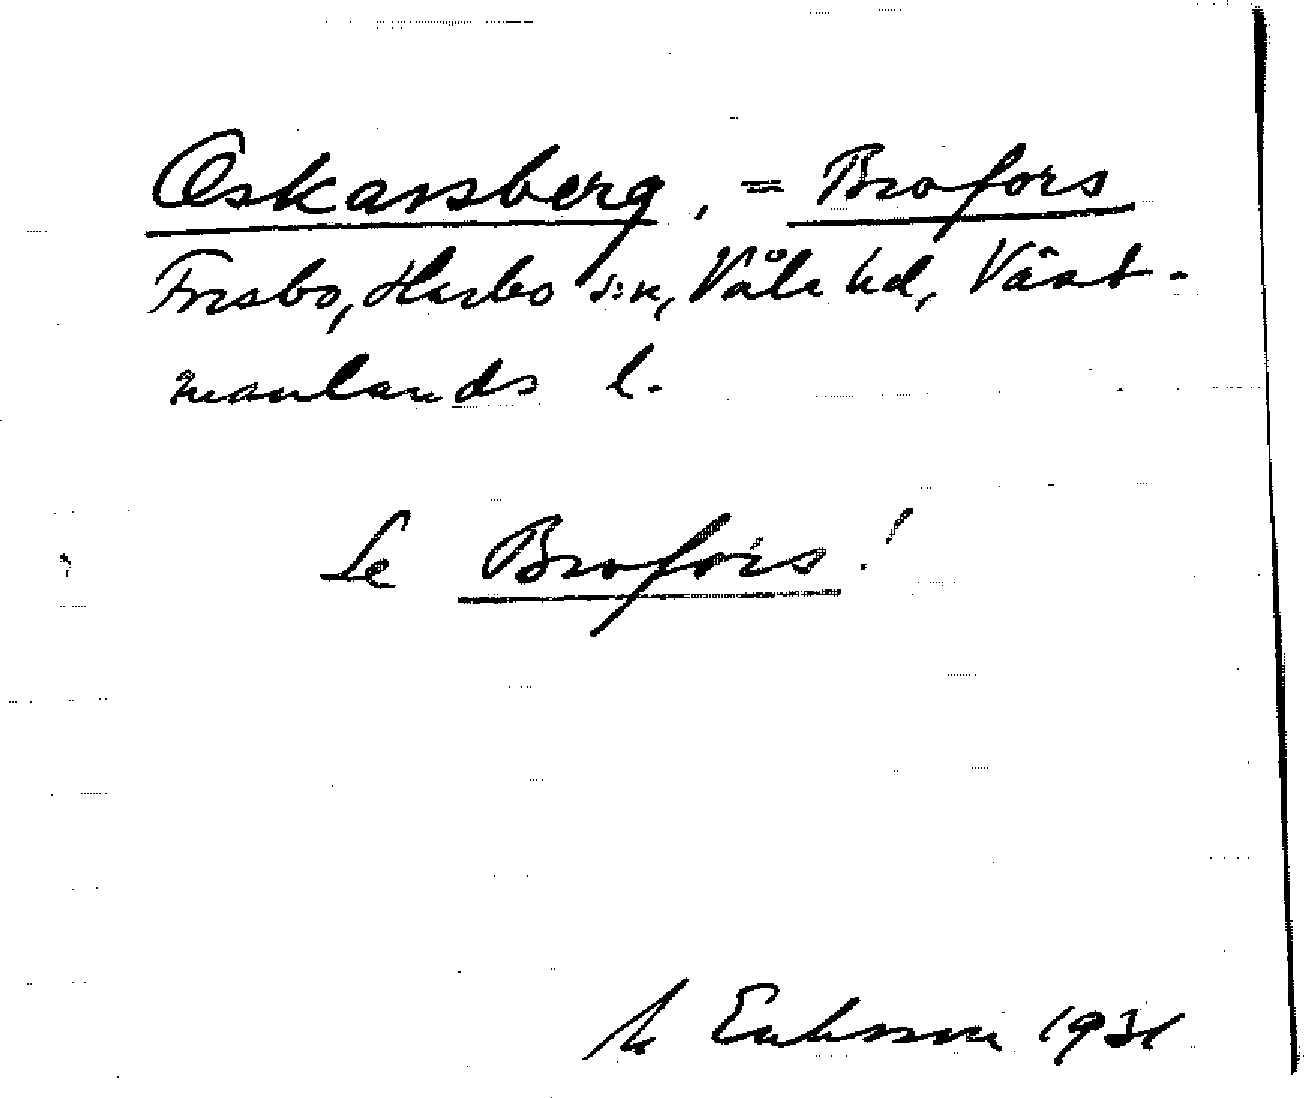 Oskarsberg, = Brofors
Fresbo, Harbo s:n, Våla hd, Väst-
manlands l.
Se Brofors!
M Eriksson 1931